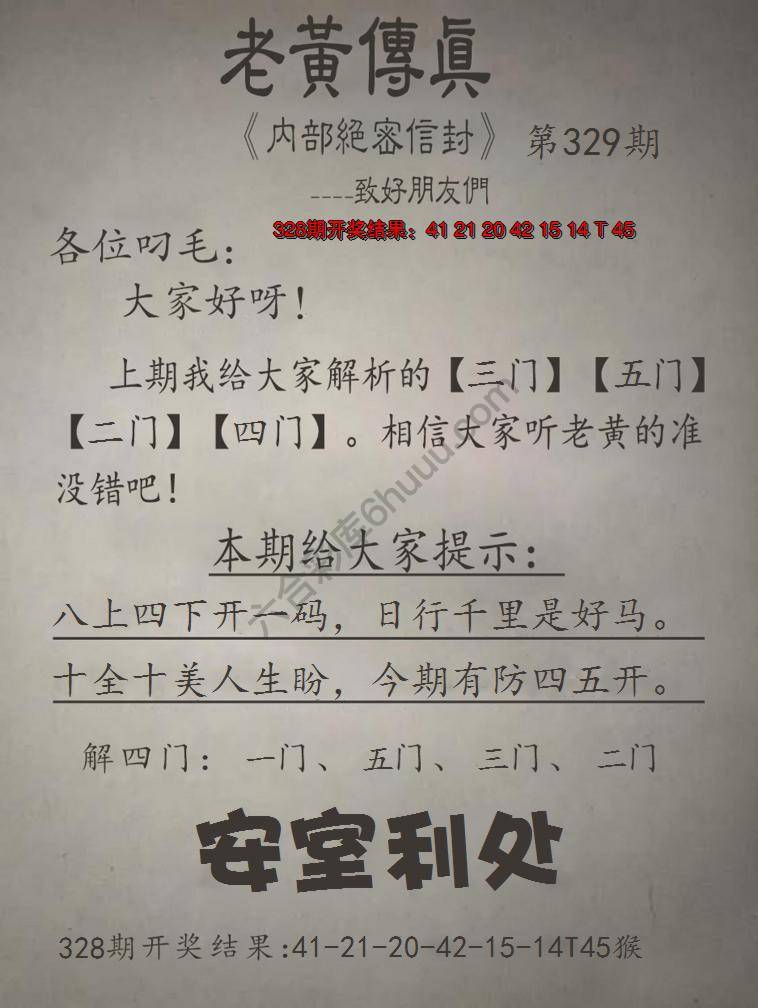 老黃傳眞
《内部絕密信封》 第329期
----致好朋友們
328期开奖结果：41 21 20 42 15 14 T 45
各位叼毛：
大家好呀！
上期我给大家解析的【三门】【五门】
【二门】【四门】。相信大家听老黄的准
没错吧！
六合彩库6huuu.com
本期给大家提示：
八上四下开一码，日行千里是好马。
十全十美人生盼，今期有防四五开。
解四门： 一门、 五门、 三门、 二门
安室利处
328期开奖结果:41-21-20-42-15-14T45猴